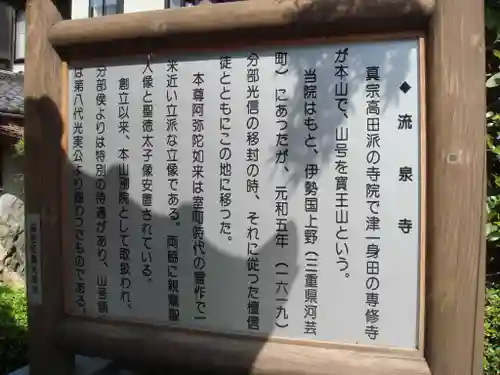 ◆流泉寺
真宗高田派の寺院で津一身田の専修寺
が本山で、山号を寳王山という。
当院はもと、伊勢国上野(三重県河芸
町)にあったが、元和五年(一六一九)
分部光信の移封の時、それに従った檀信
徒とともにこの地に移った。
本尊阿弥陀如来は室町時代の霊作で一
米近い立派な立像である。両脇に親鸞聖
人像と聖徳太子像安置されている。
創立以来、本山別院として取扱われ、
分部侯よりは特別の待遇があり、山号額
は第八代光実公より賜わったものである。